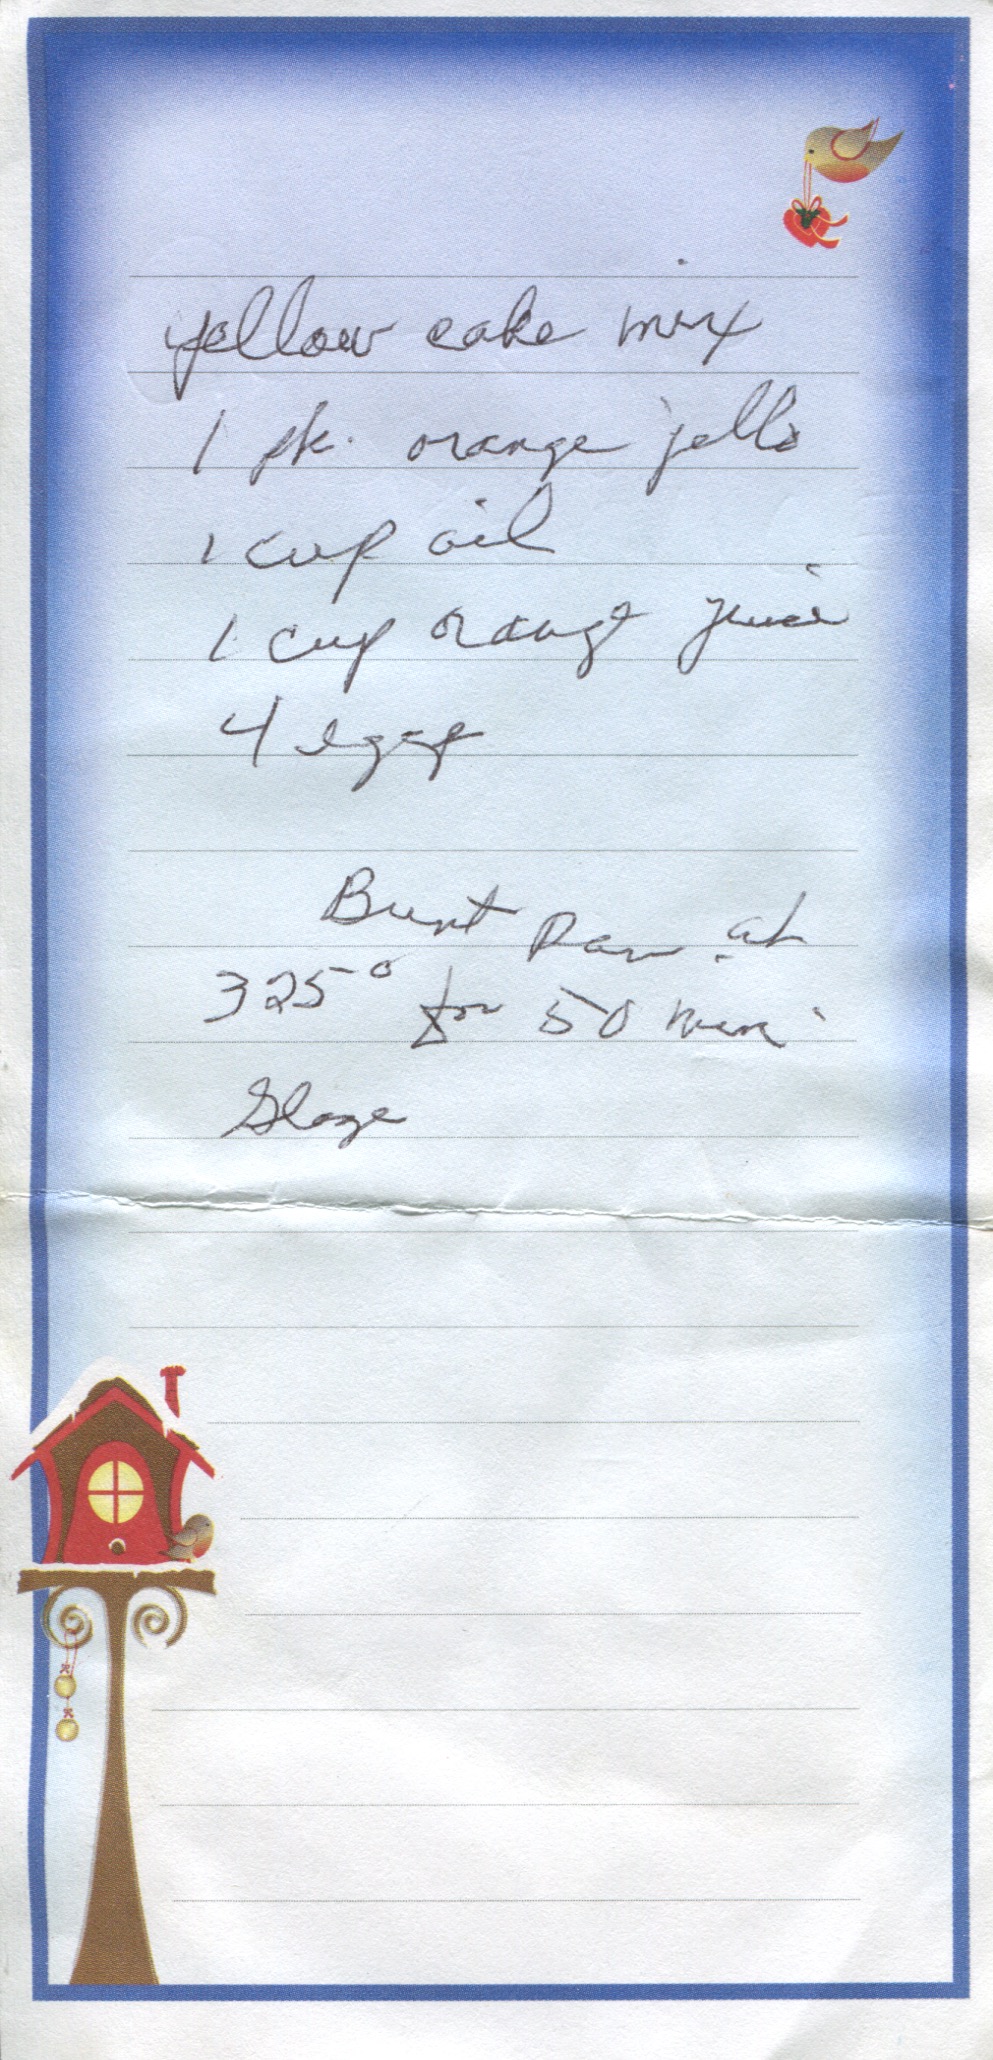 yellow cake mix
1 pk. orange jello
1 cup oil
1 cup orange juice
4 eggs
Bunt Pan at
325° for 50 min
Glaze